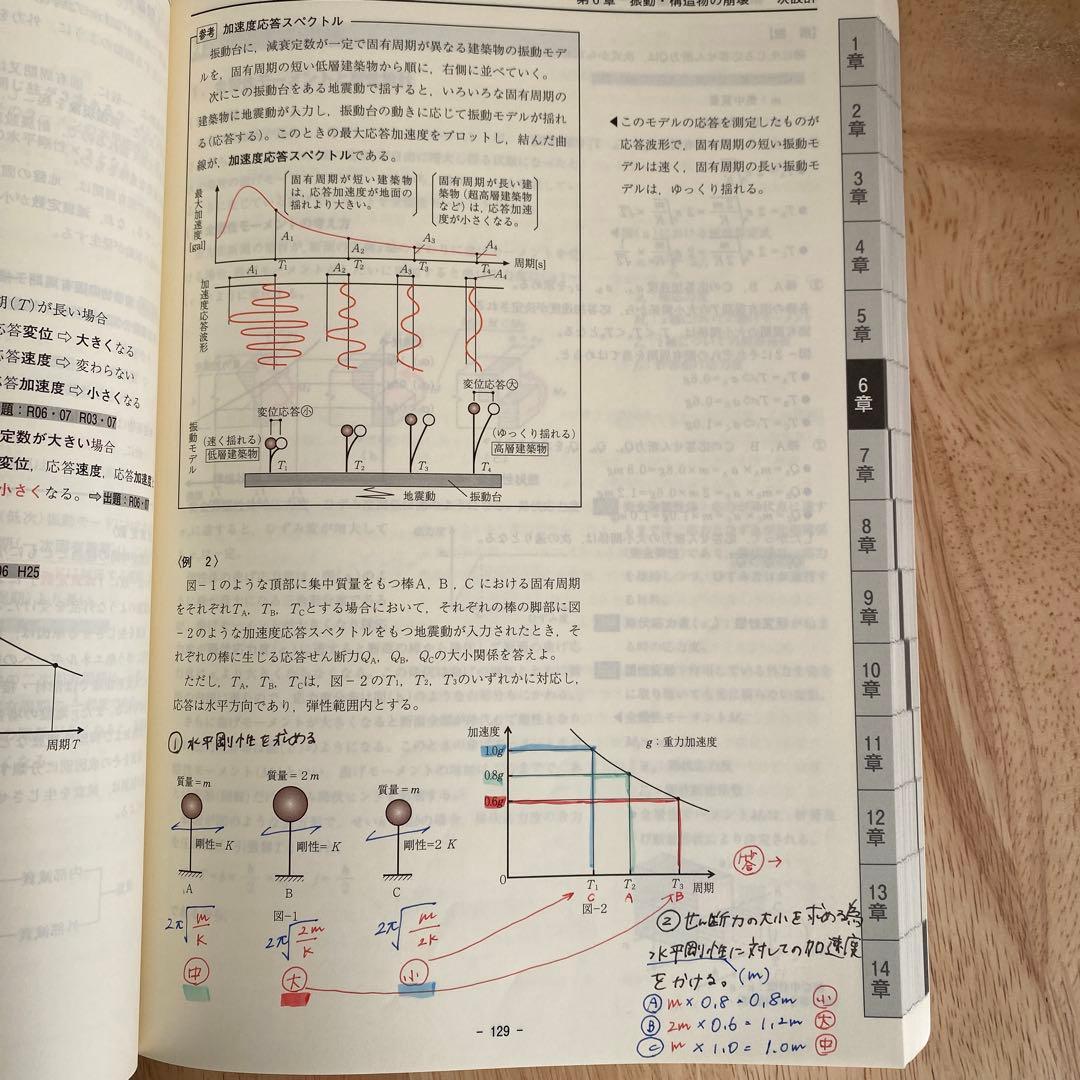 第6章 振動・構造物の崩壊
参考 加速度応答スペクトル
振動台に，減衰定数が一定で固有周期が異なる建築物の振動モデ
ルを，固有周期の短い低層建築物から順に，右側に並べていく。
次にこの振動台をある地震動で揺すると，いろいろな固有周期の
建築物に地震動が入力し，振動台の動きに応じて振動モデルが揺れ
る(応答する)。このときの最大応答加速度をプロットし，結んだ曲
線が，加速度応答スペクトルである。
◀このモデルの応答を測定したものが
応答波形で，固有周期の短い振動モ
デルは速く，固有周期の長い振動モ
デルは，ゆっくり揺れる。
最大加速度[gal]
固有周期が短い建築物
は，応答加速度が地面の
揺れより大きい。
固有周期が長い建
築物(超高層建築物
など)は，応答加速
度が小さくなる。
A1 A2 A3 A4
T1 T2 T3 T4 周期[s]
加速度応答波形
A1 A2 A3 A4
振動モデル
変位応答㊙小
変位応答大
(速く揺れる)
低層建築物
(ゆっくり揺れる)
高層建築物
T1 T2 T3 T4
地震動 振動台
期(T)が長い場合
応答変位 ⇨ 大きくなる
応答速度 ⇨ 変わらない
応答加速度 ⇨ 小さくなる
題：R06・07 R03・07
定数が大きい場合
変位，応答速度，応答加速度
小さくなる。⇨出題：R06・07
06 H25
周期T
〈例 2〉
図−1のような頂部に集中質量をもつ棒A，B，Cにおける固有周期
をそれぞれTA，TB，TCとする場合において，それぞれの棒の脚部に図
−2のような加速度応答スペクトルをもつ地震動が入力されたとき，そ
れぞれの棒に生じる応答せん断力QA，QB，QCの大小関係を答えよ。
ただし，TA，TB，TCは，図−2のT1，T2，T3のいずれかに対応し，
応答は水平方向であり，弾性範囲内とする。
① 水平剛性を求める
質量＝m
質量＝2m
質量＝m
剛性＝K
剛性＝K
剛性＝2K
A B C
図-1
2π√m/K
2π√2m/K
2π√m/2K
中
大
小
加速度
g：重力加速度
1.0g
0.8g
0.6g
0
T1 T2 T3 周期
C A B
図-2
答→
② せん断力の大小を求める為
水平剛性に対しての加速度
をかける。(m)
Ⓐ m×0.8＝0.8m 小
Ⓑ 2m×0.6＝1.2m 大
Ⓒ m×1.0＝1.0m 中
- 129 -
1章
2章
3章
4章
5章
6章
7章
8章
9章
10章
11章
12章
13章
14章